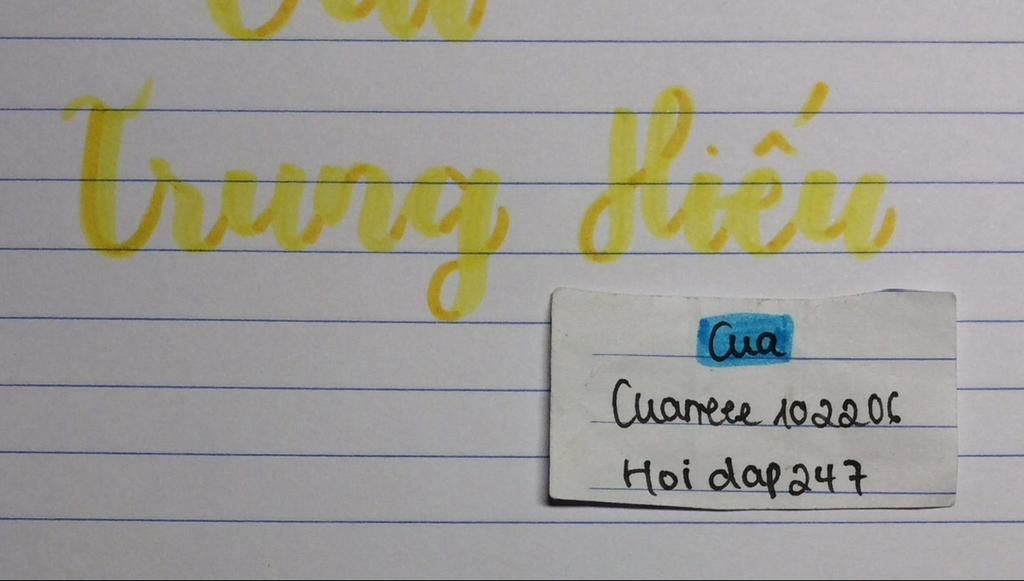 Trung Hiếu
Cua
Cuanеее 102206
Hoi dap 247